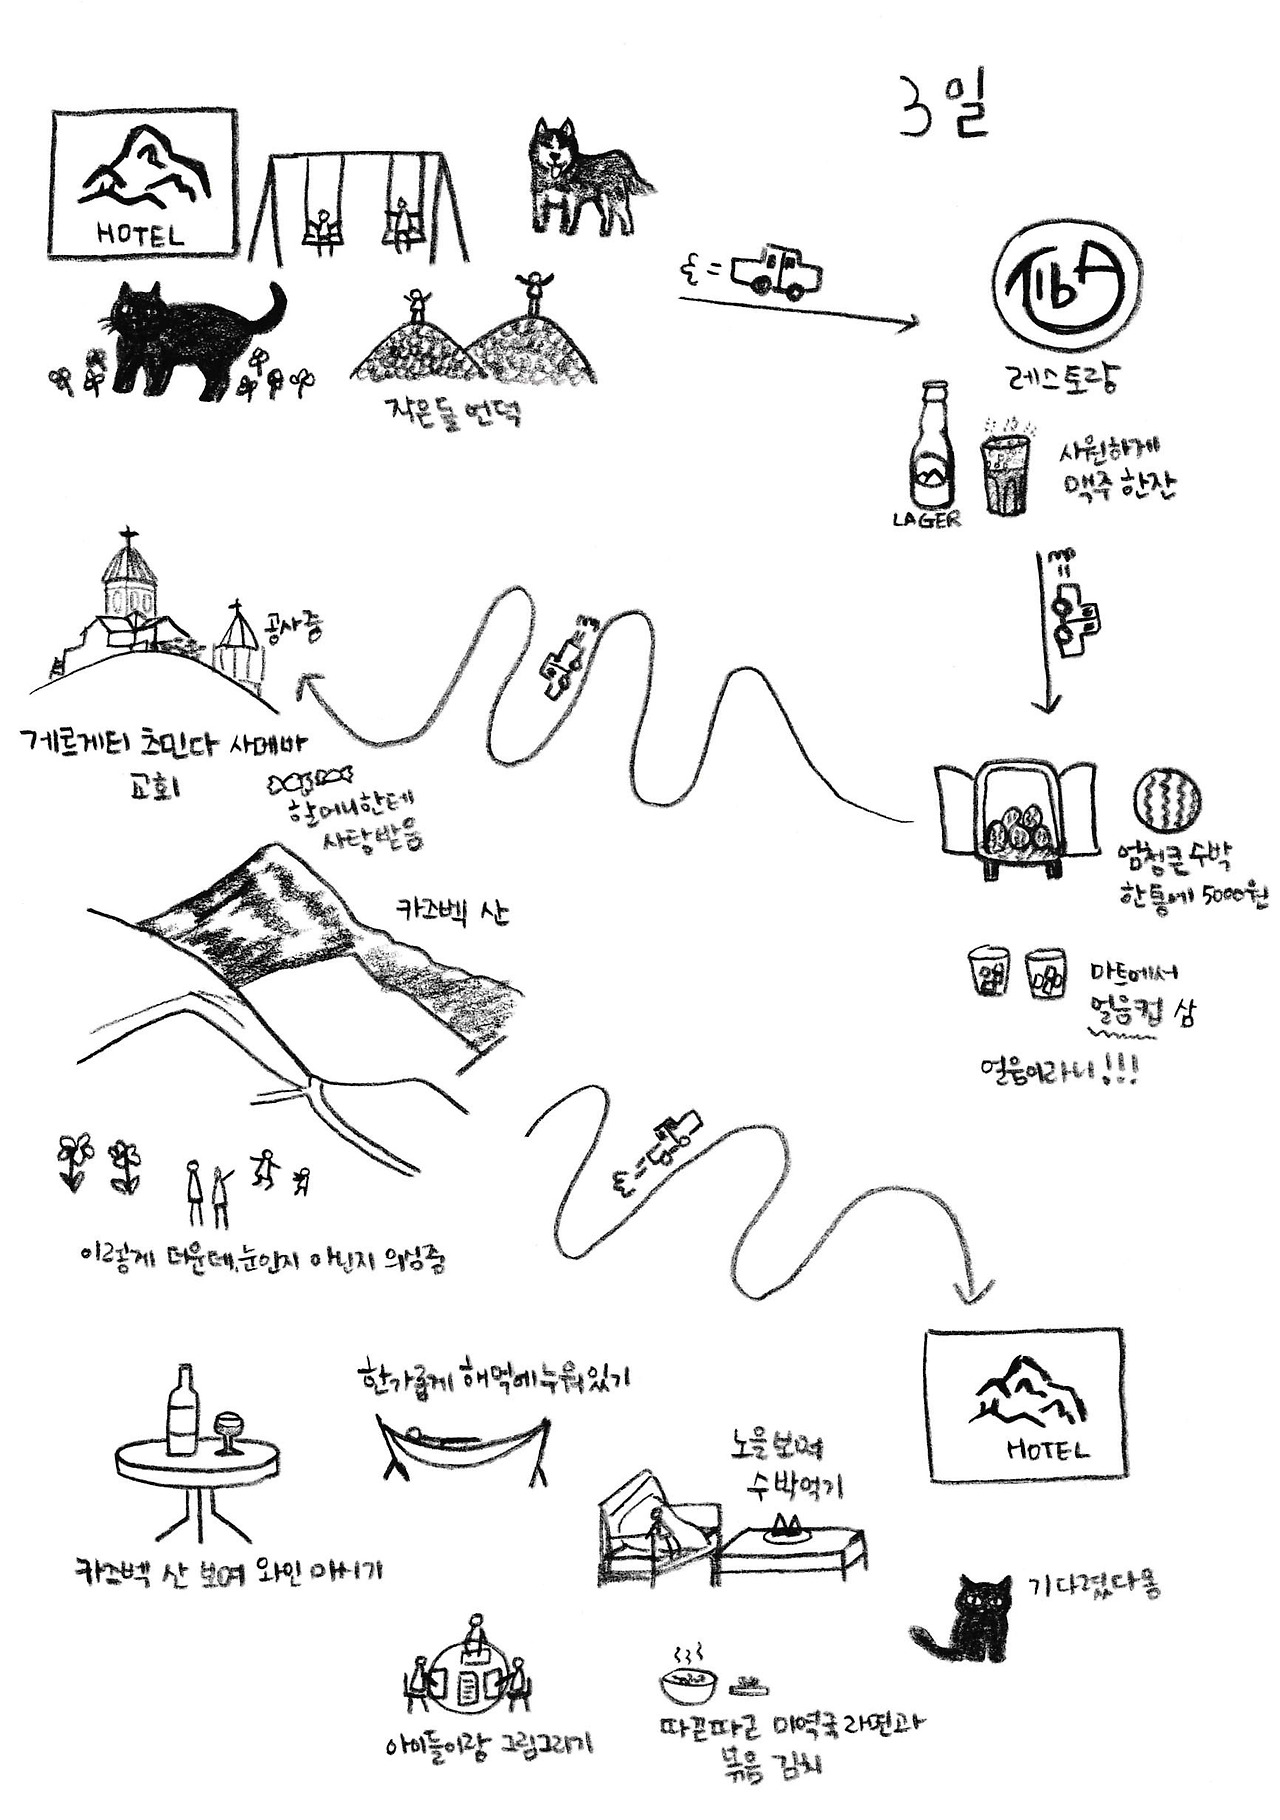 3일
HOTEL
작은들 언덕
TibA
레스토랑
LAGER
시원하게
맥주 한잔
공사중
게르게티 츠민다 사메바
교회
할머니한테
사탕받음
엄청큰 수박
한통에 5000원
마트에서
얼음컵 삼
얼음이라니!!!
카즈벡 산
이렇게 더운데, 눈인지 아닌지 의심중
HOTEL
한가롭게 해먹에 누워있기
노을보며
수박먹기
카즈벡 산 보며 와인 마시기
기다렸다옹
아이들이랑 그림그리기
따끈따근 미역국라면과
볶음 김치